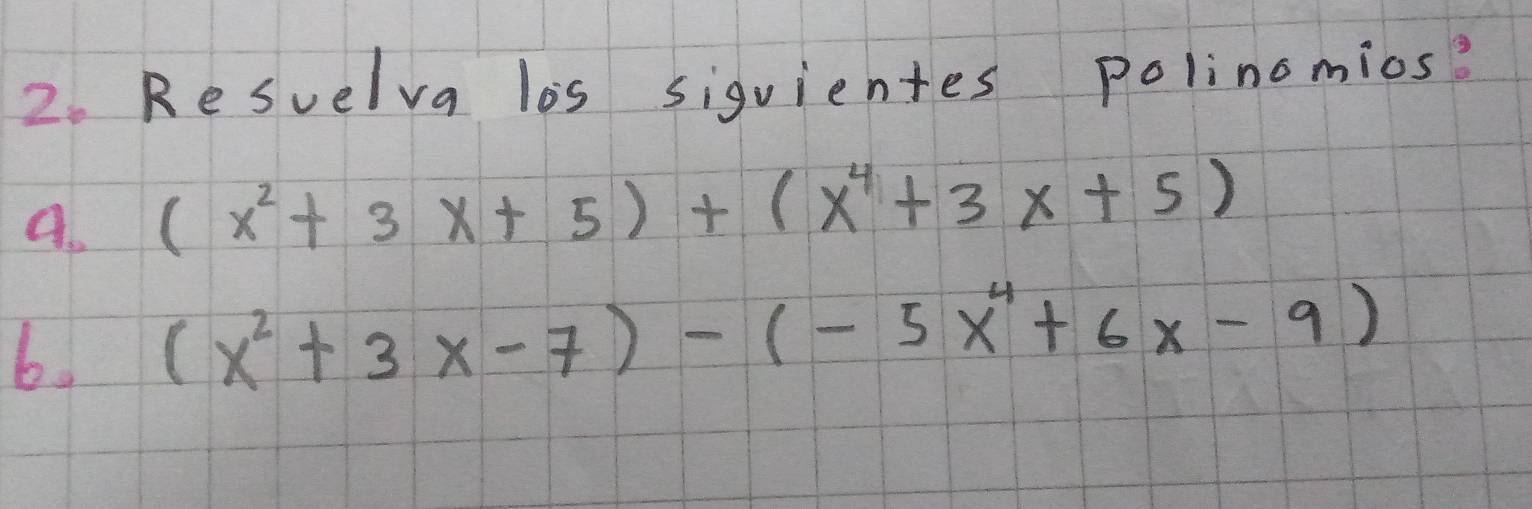 2. Resuelva los siguientes polinomios:
a. (x² + 3x + 5) + (x⁴ + 3x + 5)
b. (x² + 3x - 7) - (- 5x⁴ + 6x - 9)